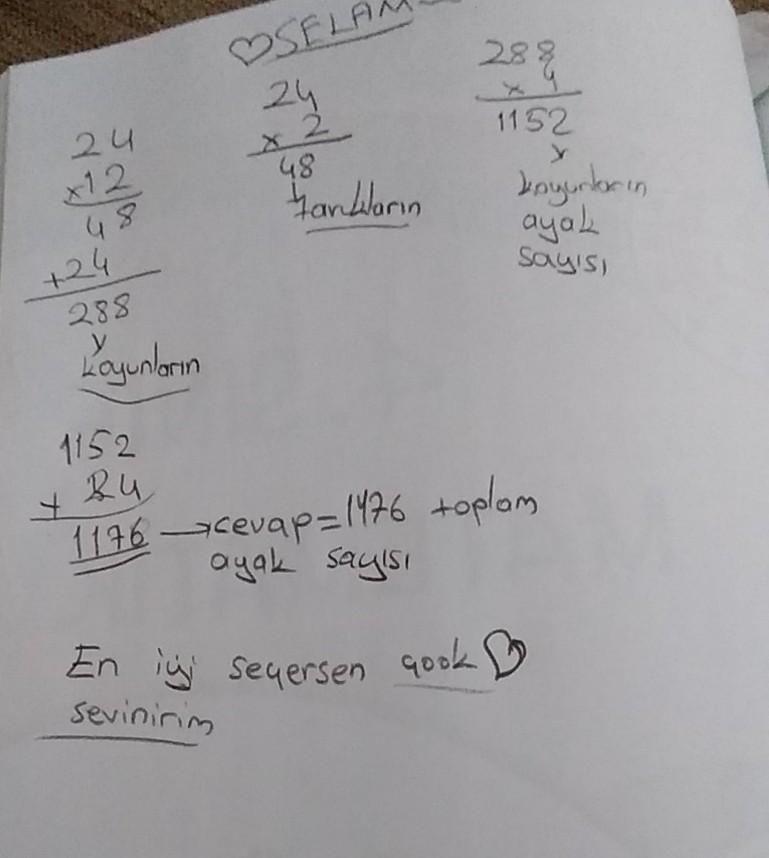 ♡SELAM
24
x12
48
+24
288
koyunların
24
x 2
48
Tavukların
288
x 4
1152
koyunların
ayak
sayısı
1152
+ 24
1176 → cevap=1176 toplam
ayak sayısı
En iyi seçersen çook ♡
sevinirim